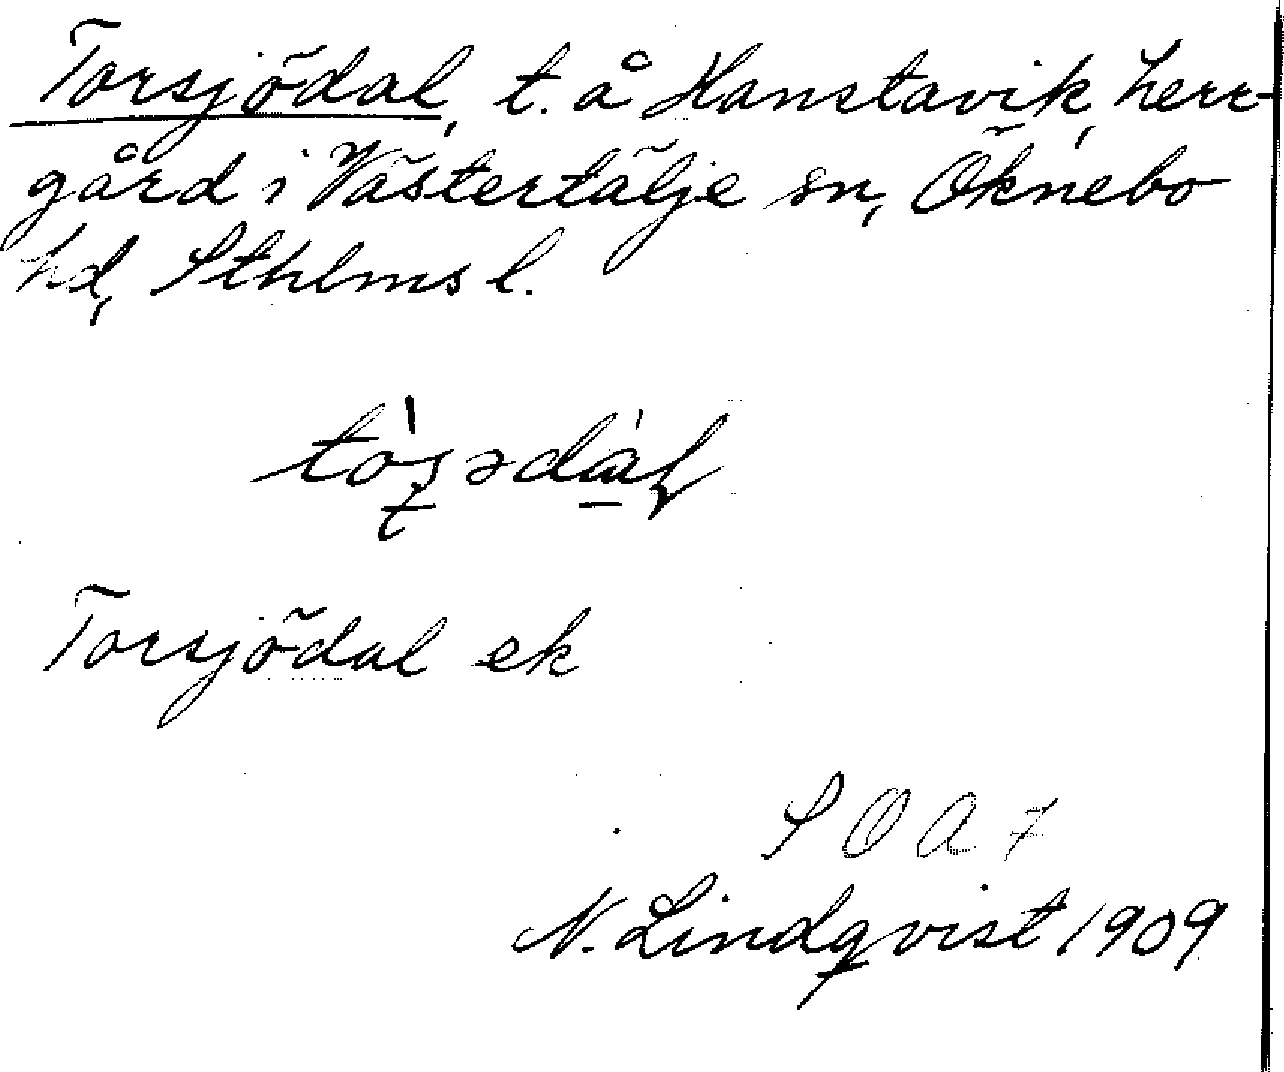 Torsjödal, t. å Hanstavik, herr-
gård i Västertälje sn, Öknebo
hd, Sthlms l.
Torsjödal ek
S O A 7
N. Lindqvist 1909